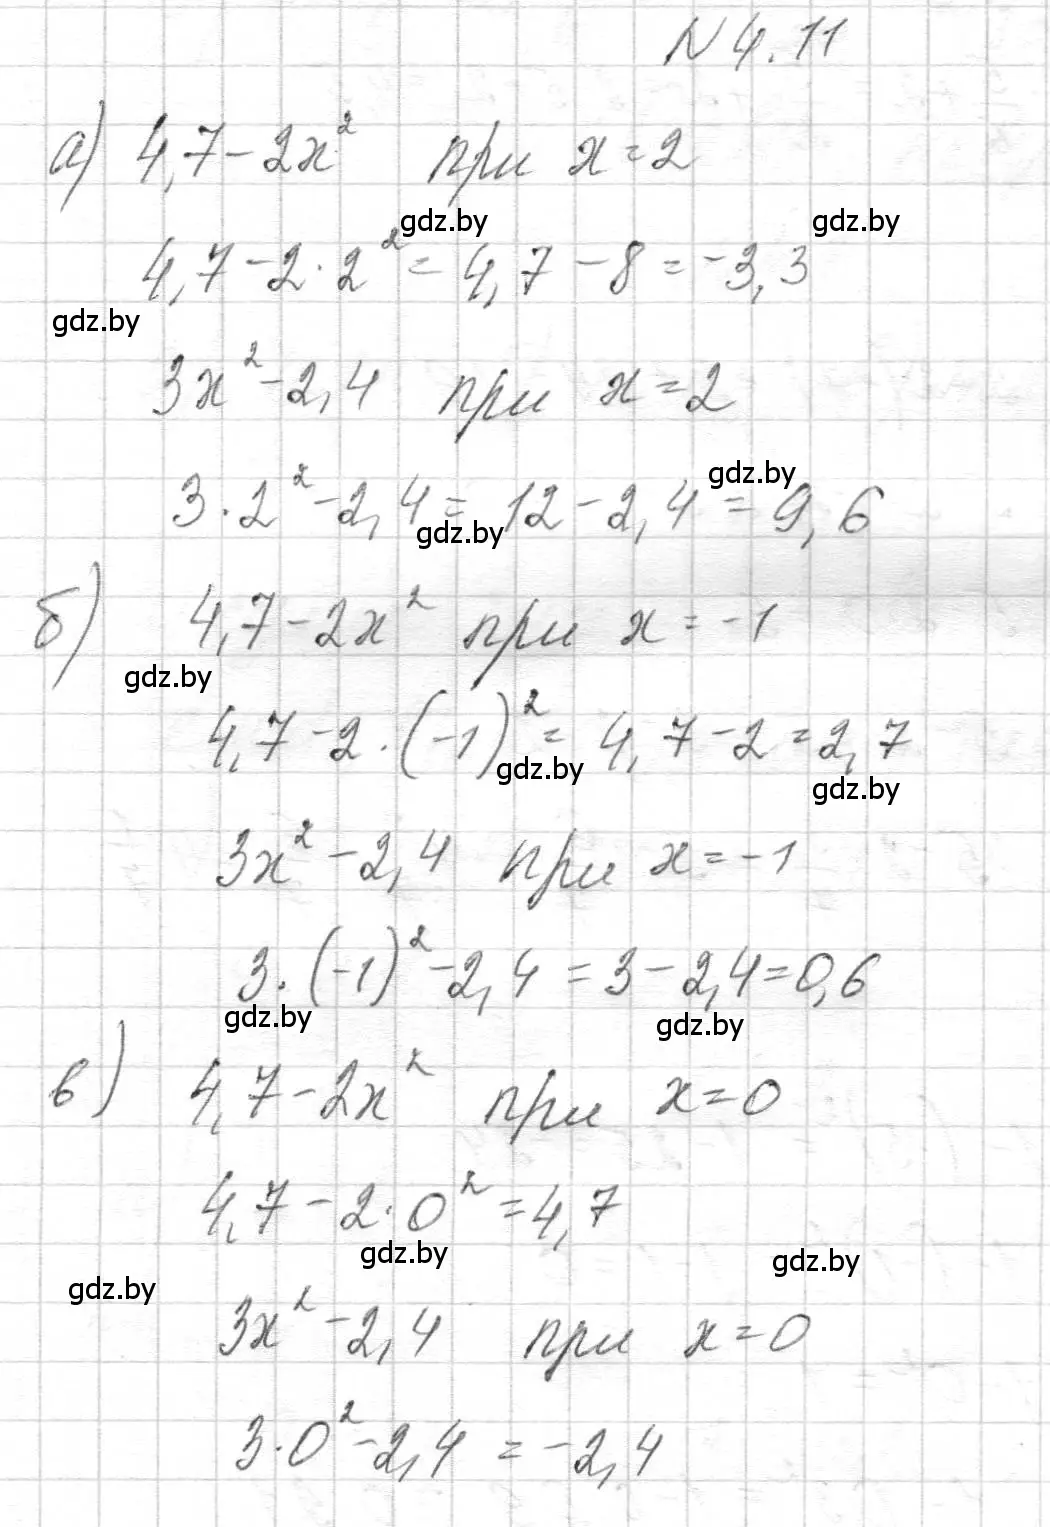 N 4.11
а) 4,7 - 2x² при x = 2
gdz.by gdz.by
4,7 - 2 · 2² = 4,7 - 8 = -3,3
gdz.by
3x² - 2,4 при x = 2
gdz.by
3 · 2² - 2,4 = 12 - 2,4 = 9,6
gdz.by
б) 4,7 - 2x² при x = -1
gdz.by
4,7 - 2 · (-1)² = 4,7 - 2 = 2,7
gdz.by gdz.by
3x² - 2,4 при x = -1
3 · (-1)² - 2,4 = 3 - 2,4 = 0,6
gdz.by gdz.by
в) 4,7 - 2x² при x = 0
4,7 - 2 · 0² = 4,7
gdz.by gdz.by
gdz.by
3x² - 2,4 при x = 0
3 · 0² - 2,4 = -2,4